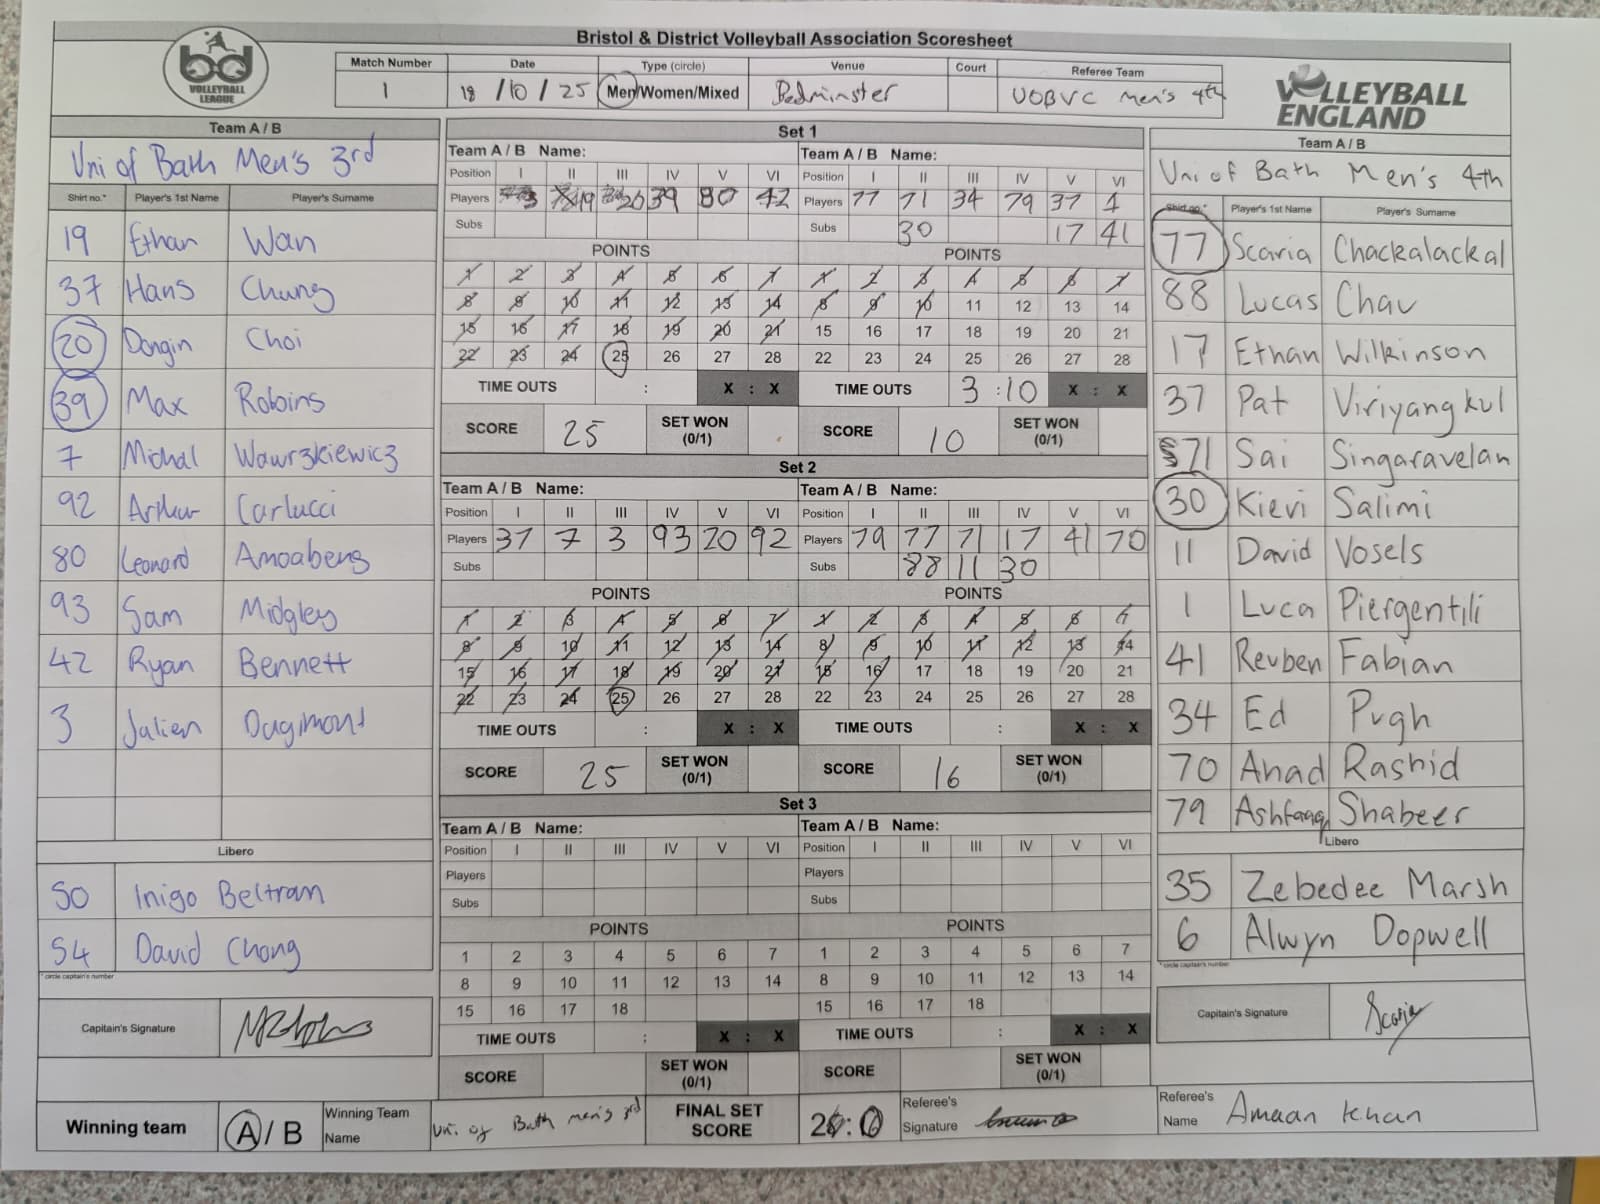 Bristol & District Volleyball Association Scoresheet
bd VOLLEYBALL LEAGUE
Match Number Date Type (circle) Venue Court Referee Team
1 18 / 10 / 25 Men/Women/Mixed Bedminster UOBVC Men's 4th
VOLLEYBALL ENGLAND
Team A / B
Uni of Bath Men's 3rd
Shirt no.* Player's 1st Name Player's Surname
19 Ethan Wan
37 Hans Chung
20 Dongin Choi
39 Max Robins
7 Michal Wawrzkiewicz
92 Arthur Carlucci
80 Leonard Amoabeng
93 Sam Midgley
42 Ryan Bennett
3 Julien Dugimont
Libero
50 Inigo Beltram
54 David Chong
* circle captain's number
Capitain's Signature
Set 1
Team A / B Name: Team A / B Name:
Position I II III IV V VI Position I II III IV V VI
Players 3 19 20 39 80 42 Players 77 71 34 79 37 1
Subs Subs 30 17 41
POINTS POINTS
1 2 3 4 5 6 7 1 2 3 4 5 6 7
8 9 10 11 12 13 14 8 9 10 11 12 13 14
15 16 17 18 19 20 21 15 16 17 18 19 20 21
22 23 24 25 26 27 28 22 23 24 25 26 27 28
TIME OUTS : X : X TIME OUTS 3 : 10 X : X
SCORE 25 SET WON (0/1) SCORE 10 SET WON (0/1)
Set 2
Team A / B Name: Team A / B Name:
Position I II III IV V VI Position I II III IV V VI
Players 37 7 3 93 20 92 Players 79 77 71 17 41 70
Subs Subs 88 11 30
POINTS POINTS
1 2 3 4 5 6 7 1 2 3 4 5 6 7
8 9 10 11 12 13 14 8 9 10 11 12 13 14
15 16 17 18 19 20 21 15 16 17 18 19 20 21
22 23 24 25 26 27 28 22 23 24 25 26 27 28
TIME OUTS : X : X TIME OUTS : X : X
SCORE 25 SET WON (0/1) SCORE 16 SET WON (0/1)
Set 3
Team A / B Name: Team A / B Name:
Position I II III IV V VI Position I II III IV V VI
Players Players
Subs Subs
POINTS POINTS
1 2 3 4 5 6 7 1 2 3 4 5 6 7
8 9 10 11 12 13 14 8 9 10 11 12 13 14
15 16 17 18 15 16 17 18
TIME OUTS : X : X TIME OUTS : X : X
SCORE SET WON (0/1) SCORE SET WON (0/1)
Team A / B
Uni of Bath Men's 4th
Shirt no.* Player's 1st Name Player's Surname
77 Scaria Chackalackal
88 Lucas Chau
17 Ethan Wilkinson
37 Pat Viriyangkul
71 Sai Singaravelan
30 Kievi Salimi
11 David Vosels
1 Luca Piergentili
41 Reuben Fabian
34 Ed Pugh
70 Ahad Rashid
79 Ashfaaq Shabeer
Libero
35 Zebedee Marsh
6 Alwyn Dopwell
* circle captain's number
Capitain's Signature Scaria
Winning team A / B Winning Team Name Uni. of Bath men's 3rd FINAL SET SCORE 2 : 0 Referee's Signature Referee's Name Amaan Khan